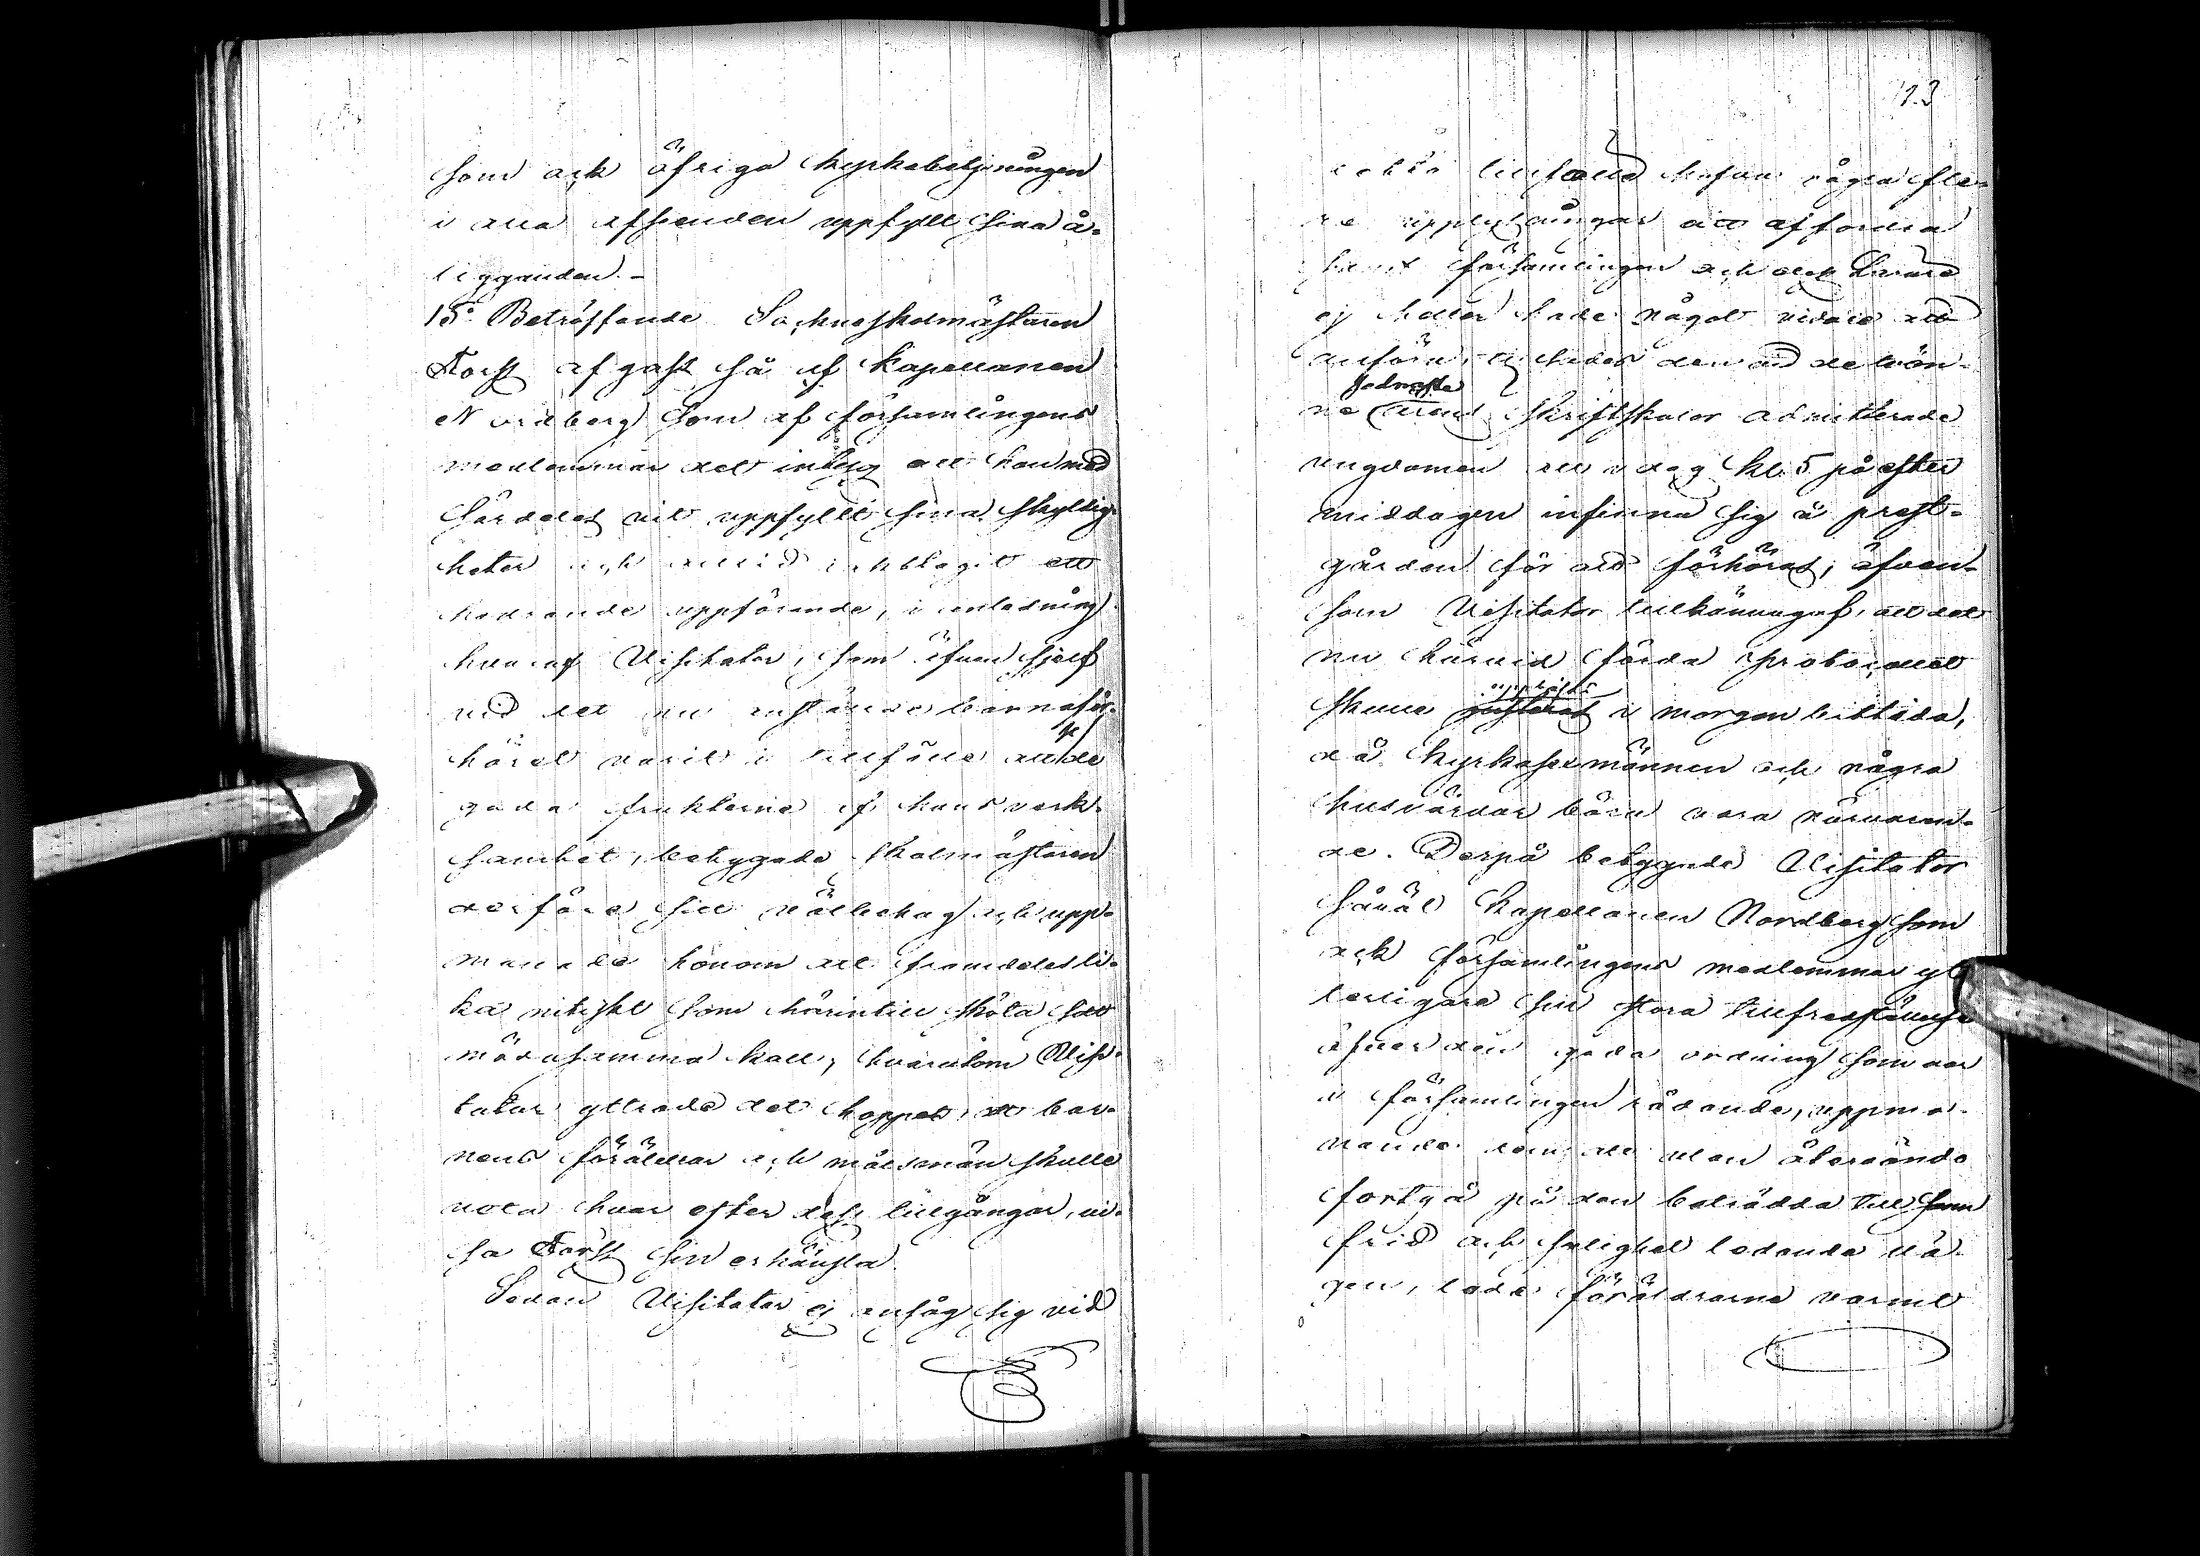 som ock öfriga kyrkobetjeningen
i alla afseenden uppfyllt sina å-
ligganden. -
15:o Beträffande Sockneskolmästaren
Forss af gafs så af Kapellanen
Nordberg som af församlingens
medlemmar det intyg att han med
särdeles nit uppfyllt sina skyldig-
heter och alltid iakttagit ett
hedrande uppförande, i anledning
hvaraf Visitator, som äfven sjelf
vid det nu anstälda barnaför-
höret varit i tillfälle att se de
goda frukterne af hans verk-
samhet, betygade skolmästaren
derföre sitt välbehag och upp-
manade honom att framdeles li-
ka nitiskt som härintill sköta sitt
mödosamma kall, hvarutom Visi-
tator yttrade det hoppet, att bar-
nens föräldrar och målsmän skulle
veta hvar efter dess tillgångar, vi-
sa Forss sin erkänsla.
Sedan Visitator ej ansåg sig vid
123
detta tillfälle hafva några fle-
re upplysningar att affordra
församlingen och dess Lärare
ej heller hade något vidare att
anföra, den vid de trän-
ne sednaste skriftskolor admitterade
ungdomen att i dag kl. 5 på efter
middagen infinna sig å prest-
gården för att förhöras; äfven-
som Visitator tillkännagaf, att det
nu härvid förda protocollet
skulle justeras i morgon bittida,
då kyrkosexmännen och några
husvärdar böra vara närvaran-
de. Derpå betygade Visitator
såväl Kapellanen Nordberg som
ock församlingens medlemmar yt-
terligare sin stora tillfredsställelse
öfver den goda ordning som var
i församlingen rådande, uppma-
nande dem att utan återvändo
fortgå på den beträdda till sann
frid och salighet ledande vä-
gen, lade föräldrarne varmt